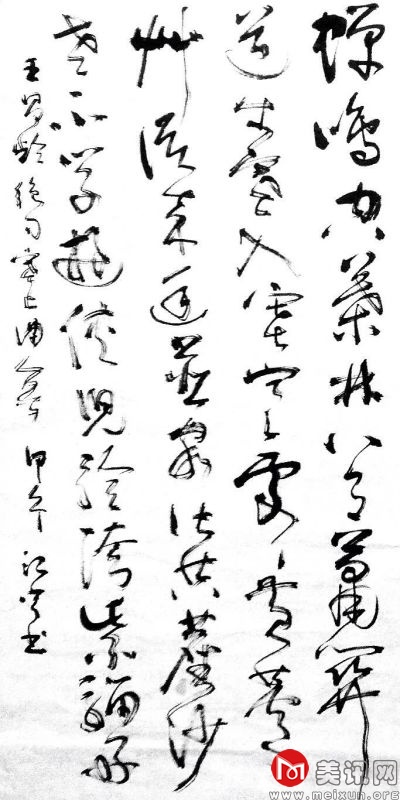 蟬鳴空桑林八月蕭關
道出塞入塞寒處々黃蘆
艸從來幽並客皆共塵沙
老不學遊俠兒矜誇紫騮好
王昌齡絕句塞上曲 甲午 書
美讯网
www.meixun.org